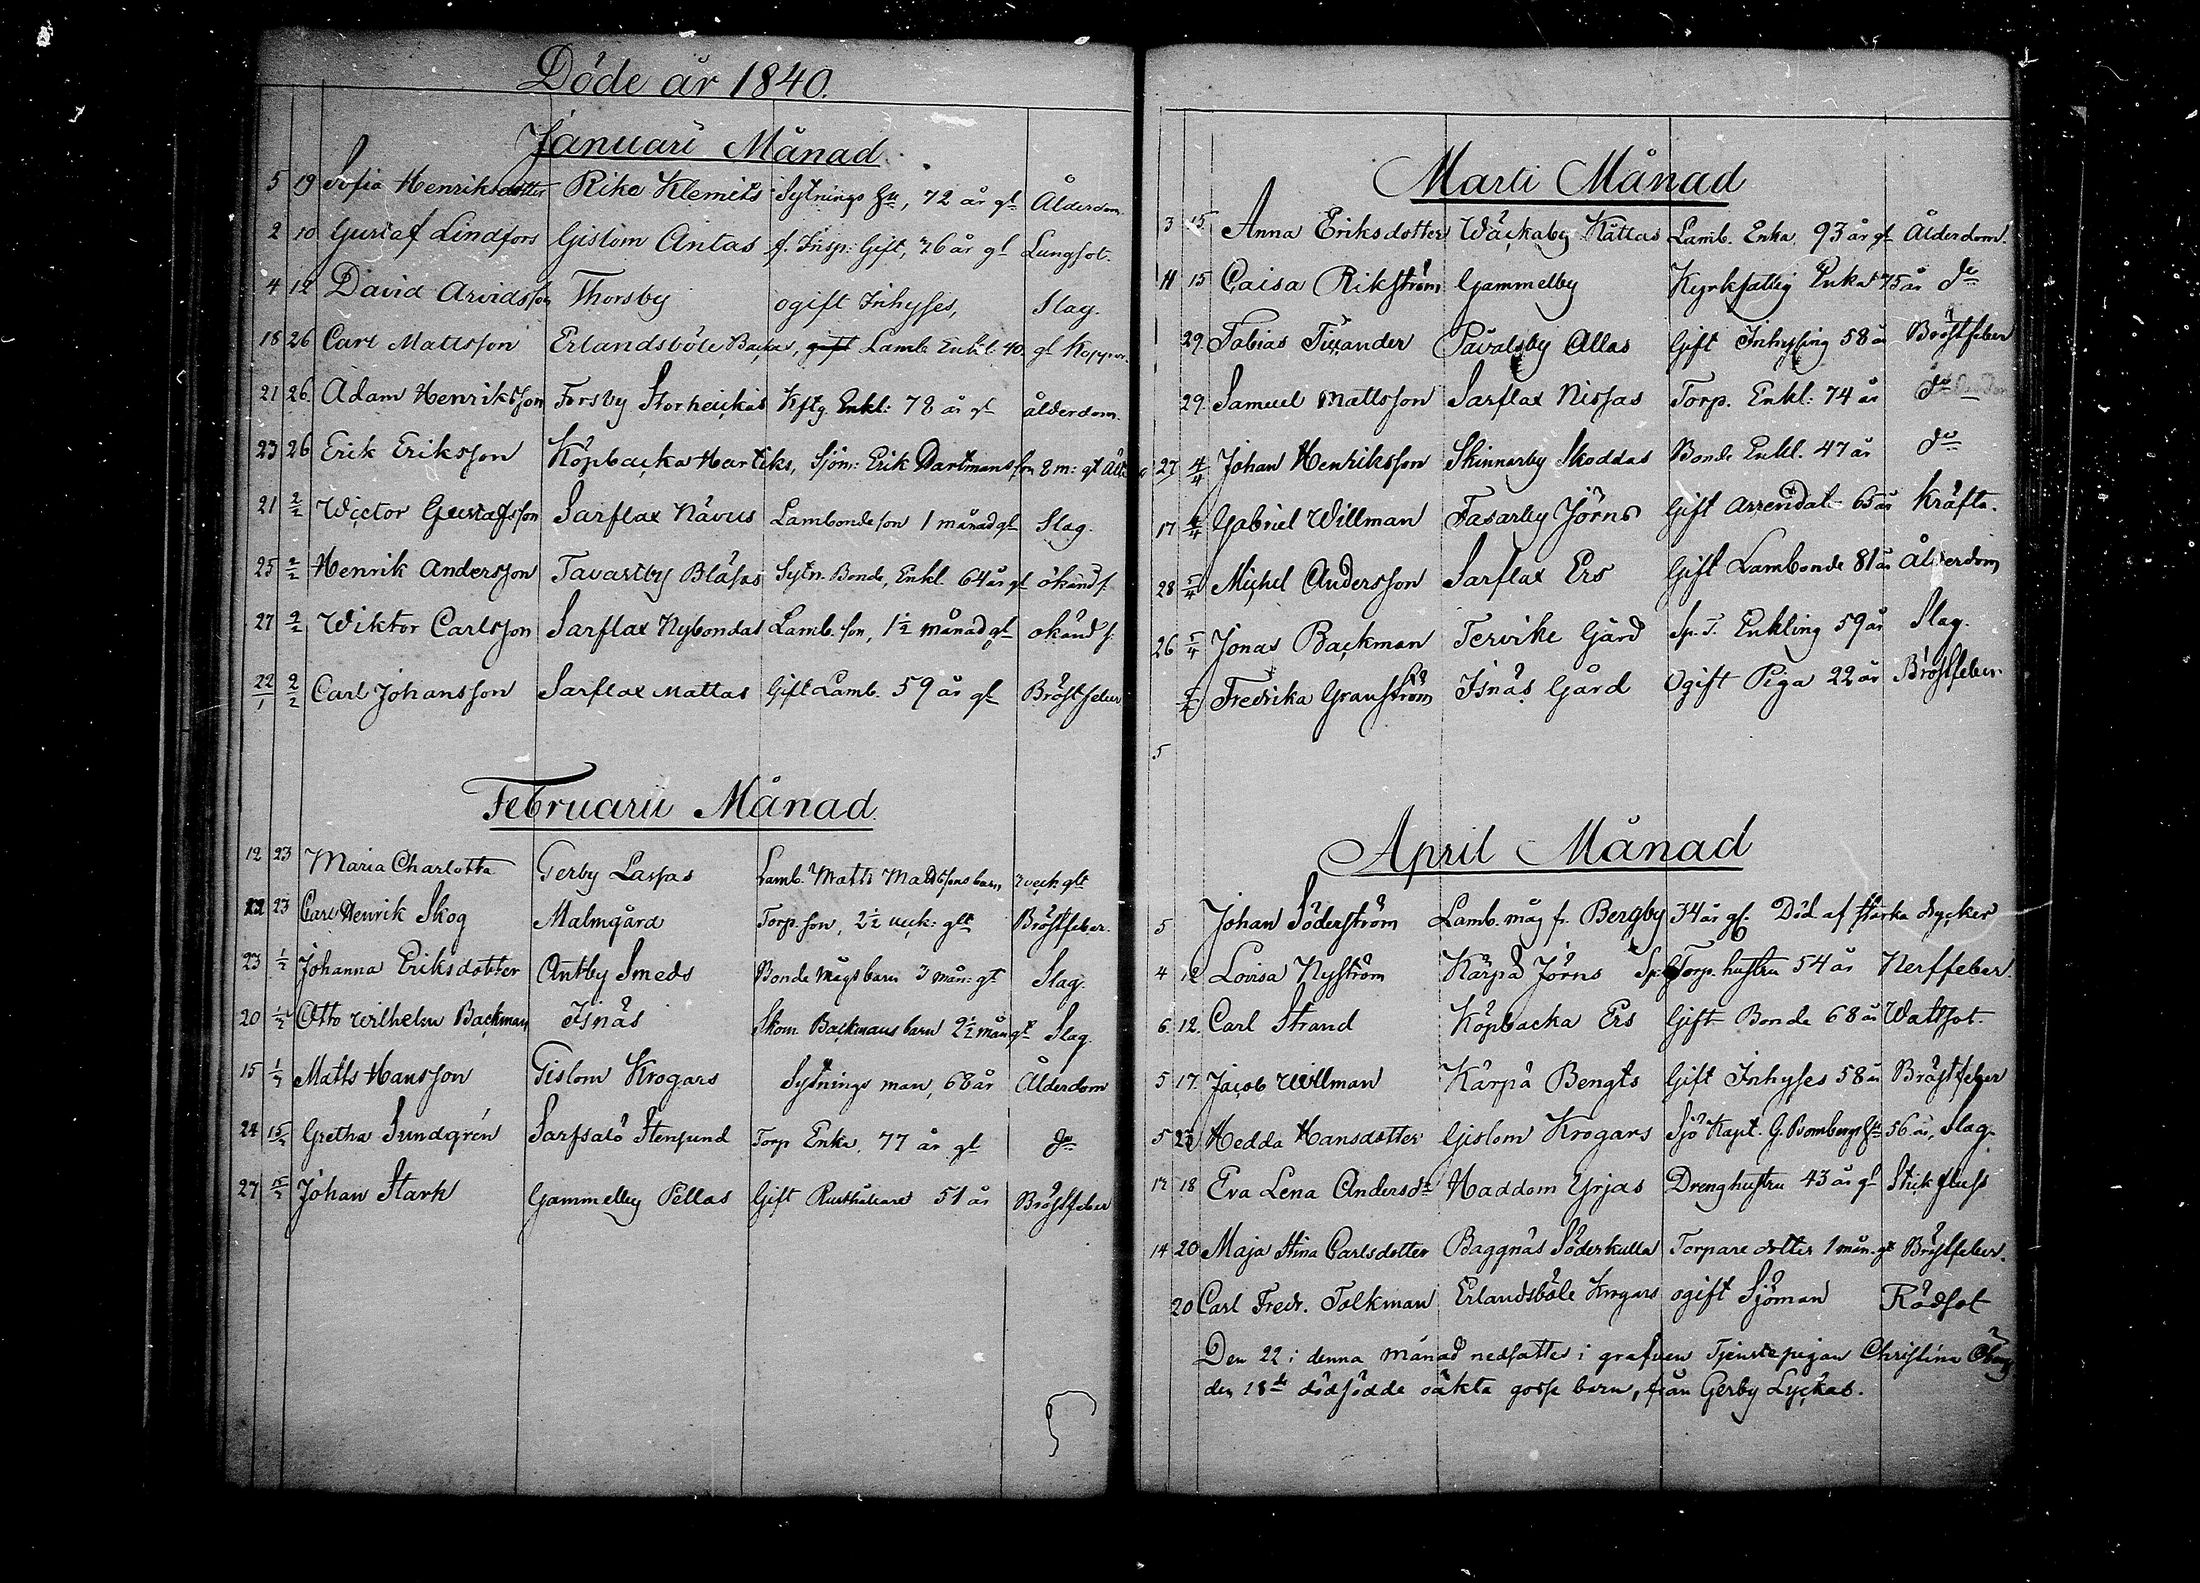 Döde år 1840.
Januari Månad
5 19 Sofia Henriksdotter Rike Klemets Sytnings hu, 72 år gl Ålderdom
2 10 Gustaf Lindfors Gislom Antas f. Insp: Gift, 26 år gl Lungsot.
4 12 David Arvidsson Thorsby ogift Inhyses, Slag.
18 26 Carl Mattsson Erlandsböle Backas, Lamb. Enkl. 40. gl Koppor
21 26 Adam Henriksson Forsby Storheickas Kftg Enkl: 78 år gl ålderdom.
23 26 Erik Eriksson Köpbacka Hartiks, Sjöm: Erik Dartmans son 8 m: gl
21 2/2 Wictor Gustafsson Sarflax Nävus Lambonde son 1 månad gl Slag.
25 2/2 Henrik Andersson Tavastby Blåsas Sytn. Bonde, Enkl. 64 år gl okänd s.
27 2/2 Wiktor Carlsson Sarflax Nybondas Lamb. son, 1 1/2 månad gl okänd s.
22/1 2/2 Carl Johansson Sarflax Mattas Gift Lamb. 59 år gl Bröstfeber
Februarii Månad
12 23 Maria Charlotta Gerby Lassas Lamb. Matts Mattssons barn veck glt
12 23 Carl Henrik Skog Malmgård Torp. son, 2 1/2 veck: glt Bröstfeber.
23 Johanna Eriksdotter Antby Smeds Bonde Mågs barn 3 mån: gt Slag.
20 Otto Wilhelm Backman Isnäs Skom. Backmans barn 2 1/2 mån gt Slag.
15 Matts Hansson Gislom Krogars Sytnings man, 68 år Ålderdom
24 Gretha Sundgrén Sarfsalö Stensund Torp Enka, 77 år gl do
27 Johan Stark Gammelby Pellas Gift Rusthållare 51 år Bröstfeber
Marti Månad
3 15 Anna Eriksdotter Wäckaby Kättas Lamb. Enka 93 år gl Ålderdom.
11 15 Caisa Rikström Gammelby Kyrkfattig Enka 75 år do
29. Tobias Tixander Påvalsby Allas Gift Inhysing 58 år Bröstfeber
29. Samuel Mattsson Sarflax Nissas Torp. Enkl: 74 år do
27 4/4 Johan Henriksson Skinnarby Skoddas Bonde Enkl. 47 år do
17 4/4 Gabriel Willman Fasarby Jörns Gift Arrendat. 65 år Kräfta.
28 5/4 Michel Andersson Sarflax Ers Gift Lambonde 81 år Ålderdom
26 5/4 Jonas Backman Tervike Gård Sp. T. Enkling 59 år Slag.
Fredrika Granström Isnäs Gård Ogift Piga 22 år Bröstfeber.
5
April Månad
5 Johan Söderström Lamb. måg fr. Bergby 34 år gl. Död af starka drycker
4 12 Lovisa Nyström Kärpå Jörns Sp. Torp. hustru 54 år Nerffeber
6 12. Carl Strand Köpbacka Ers Gift Bonde 68 år Wattsot.
5 17. Jacob Willman Kärpå Bengts Gift Inhyses 58 år Bröstfeber
5 Hedda Hansdotter Gislom Krogars Sjö Kapt. G. Brombergs hu 56 år, Slag.
12 18 Eva Lena Andersdr Haddom Yrjas Drenghustru 43 år gl Stickfluss
14 20 Maja Stina Carlsdotter Baggnäs Söderkulla Torpare dotter 1 mån. gl Bröstfeber.
20 Carl Fredr. Tolkman Erlandsböle Krogars ogift Sjöman Rödsot
Den 22 i denna månad nedsattes i grafven Tjenstepigan Christina Öberg
den 18de dödfödde oäkta gosse barn, från Gerby Lyckas.